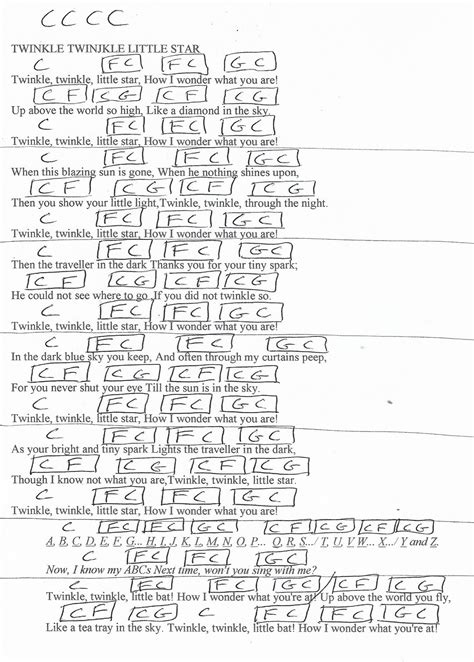 C C C C
TWINKLE TWINJKLE LITTLE STAR
C F C F C G C
Twinkle, twinkle, little star, How I wonder what you are!
C F C G C F C G
Up above the world so high, Like a diamond in the sky.
C F C F C G C
Twinkle, twinkle, little star, How I wonder what you are!
C F C F C G C
When this blazing sun is gone, When he nothing shines upon,
C F C G C F C G
Then you show your little light,Twinkle, twinkle, through the night.
C F C F C G C
Twinkle, twinkle, little star, How I wonder what you are!
C F C F C G C
Then the traveller in the dark Thanks you for your tiny spark;
C F C G C F C G
He could not see where to go ,If you did not twinkle so.
C F C F C G C
Twinkle, twinkle, little star, How I wonder what you are!
C F C F C G C
In the dark blue sky you keep, And often through my curtains peep,
C F C G C F C G
For you never shut your eye Till the sun is in the sky.
C F C F C G C
Twinkle, twinkle, little star, How I wonder what you are!
C F C F C G C
As your bright and tiny spark Lights the traveller in the dark,
C F C G C F C G
Though I know not what you are,Twinkle, twinkle, little star.
C F C F C G C
Twinkle, twinkle, little star, How I wonder what you are!
C F C F C G C C F C G C F C G
A, B, C, D, E, F, G... H, I, J, K, L, M, N, O, P... Q, R, S.../ T, U, V... W... X.../ Y and Z.
C F C F C G C
Now, I know my ABCs Next time, won't you sing with me?
C F C F C G C C F C G
Twinkle, twinkle, little bat! How I wonder what you're at! Up above the world you fly,
C F C G C F C F C G C
Like a tea tray in the sky. Twinkle, twinkle, little bat! How I wonder what you're at!